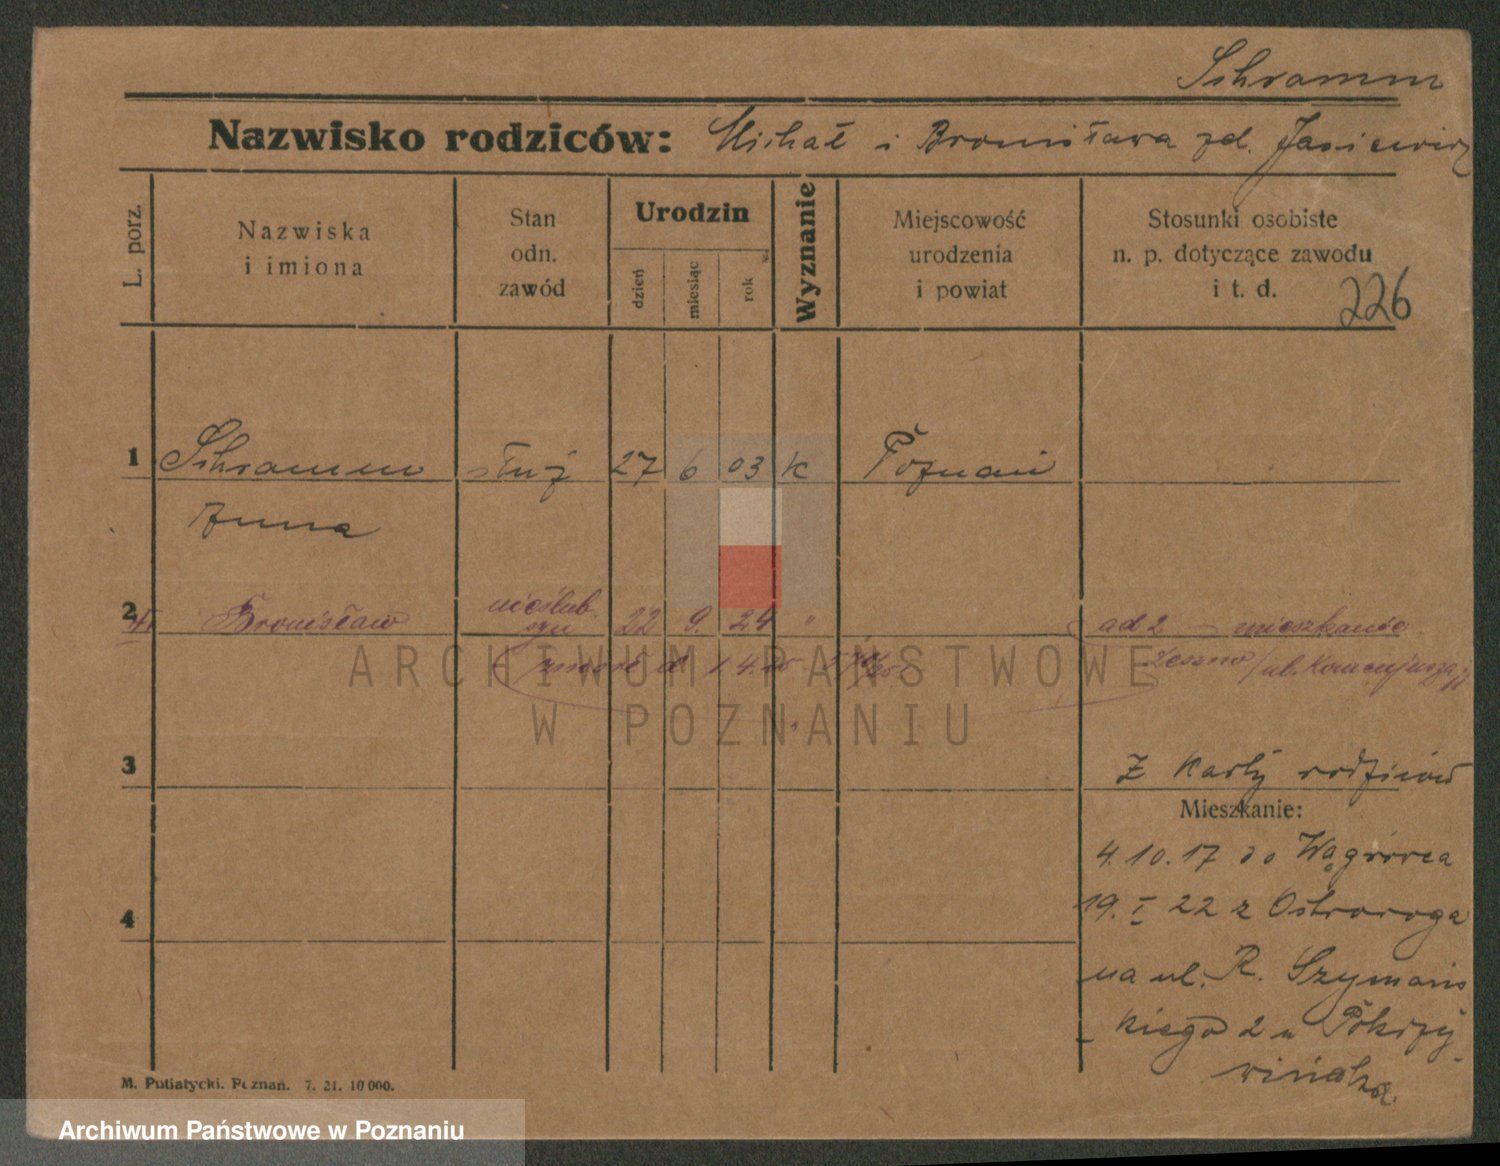 Schramm
Nazwisko rodziców: Michał i Bronisława zd. Jasiewicz
L. porz.
Nazwiska
i imiona
Stan
odn.
zawód
Urodzin
dzień
miesiąc
rok
Wyznanie
Miejscowość
urodzenia
i powiat
Stosunki osobiste
n. p. dotyczące zawodu
i t. d.
226
1 Schramm służ 27 6 03 K Poznań
Anna
2 Bronisław nieślub. 22 9. 24 " ad 2 mieszkanie
syn
zmarł d. 1.4.25 Leszno ul.
ARCHIWUM PAŃSTWOWE
W POZNANIU
3
Z karty rodziców
Mieszkanie:
4.10.17 do Wągrówca
19. I 22 z Ostroroga
4
na ul. R. Szymańs
kiego 2 u Pokrzy-
wińska
M. Putiatycki. Poznań. 7. 21. 10 000.
Archiwum Państwowe w Poznaniu